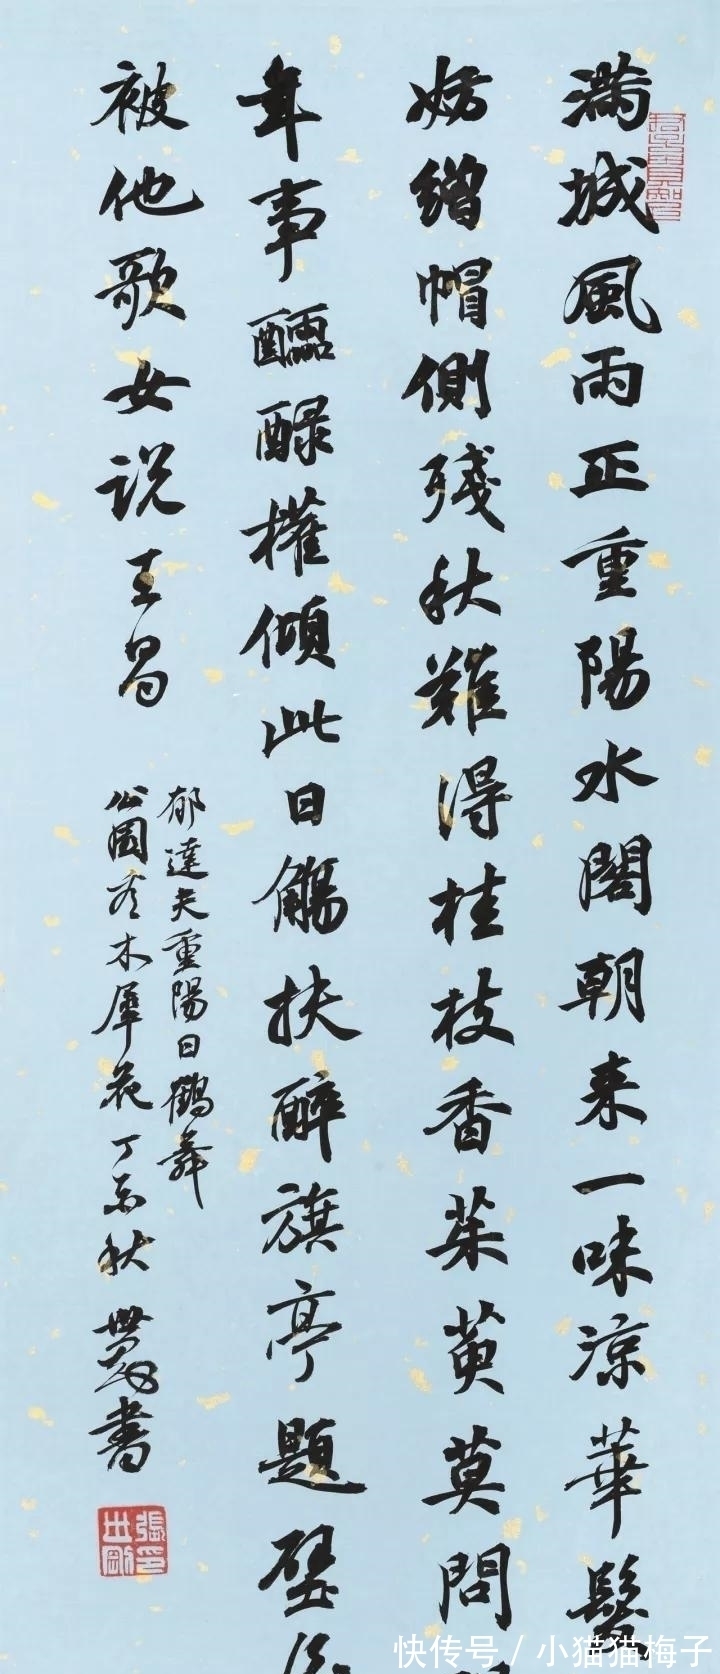 滿城風雨正重陽水閣朝來一味涼華鬢
妨繒帽側殘秋難得桂枝香茱萸莫問
年事醽醁權傾此日觴扶醉旗亭題壁
被他歌女説王昌
郁達夫重陽日鶴舞
公園看木犀花丁亥秋世剛書
張世剛印
快传号/小猫猫梅子